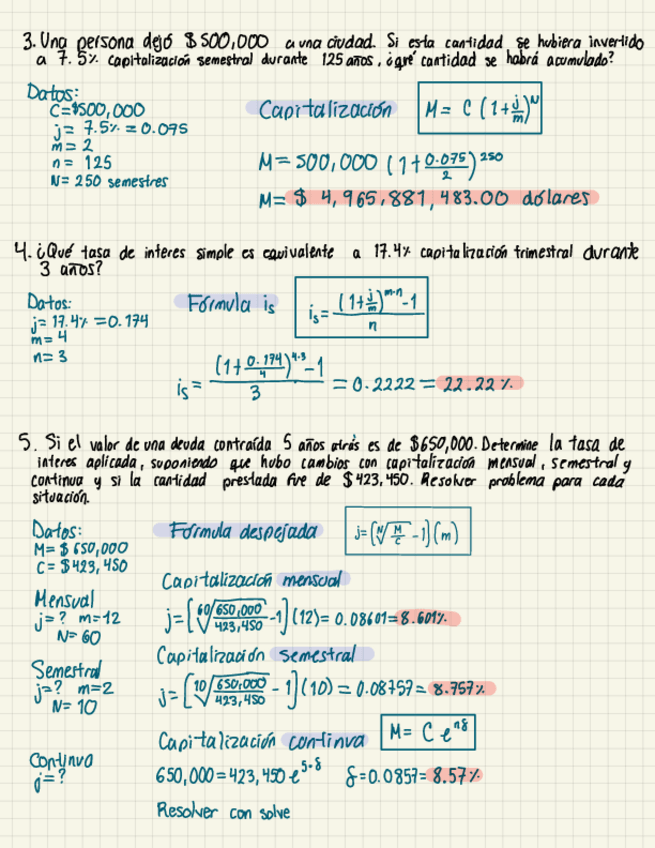 3. Una persona dejó $500,000 a una ciudad. Si esta cantidad se hubiera invertido
a 7.5% capitalización semestral durante 125 años, ¿qué cantidad se habrá acumulado?
Datos:
C=$500,000
j= 7.5% = 0.075
m= 2
n= 125
N= 250 semestres
Capitalización M= C (1+j/m)^N
M= 500,000 (1+0.075/2)^250
M= $ 4,965,881,483.00 dólares
4. ¿Qué tasa de interes simple es equivalente a 17.4% capitalización trimestral durante
3 años?
Datos:
j= 17.4% =0.174
m= 4
n= 3
Fórmula is is= ((1+j/m)^m·n -1)/n
is= ((1+0.174/4)^4·3 -1)/3 = 0.2222 = 22.22%
5. Si el valor de una deuda contraída 5 años atrás es de $650,000. Determine la tasa de
interes aplicada, suponiendo que hubo cambios con capitalización mensual, semestral y
continua y si la cantidad prestada fue de $423,450. Resolver problema para cada
situación.
Datos:
M= $650,000
C= $423,450
Fórmula despejada j=(ᴺ√(M/C) -1)(m)
Capitalización mensual
Mensual
j=? m=12
N= 60
j=[⁶⁰√(650,000/423,450) -1](12)= 0.08601=8.601%
Capitalización semestral
Semestral
j=? m=2
N= 10
j=[¹⁰√(650,000/423,450) -1](10) = 0.08757= 8.757%
Capitalización continua M= C e^nδ
Continua
j=?
650,000=423,450 e^5·δ δ=0.0857= 8.57%
Resolver con solve